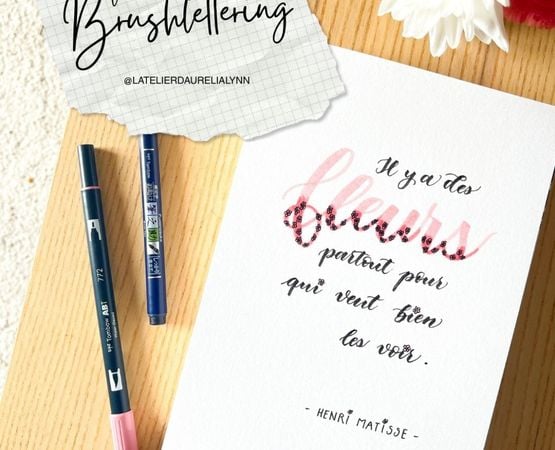 Brushlettering
@LATELIERDAURELIALYNN
Il y a des
fleurs
partout pour
qui veut bien
les voir.
- HENRI MATISSE -
772
Tombow ABT